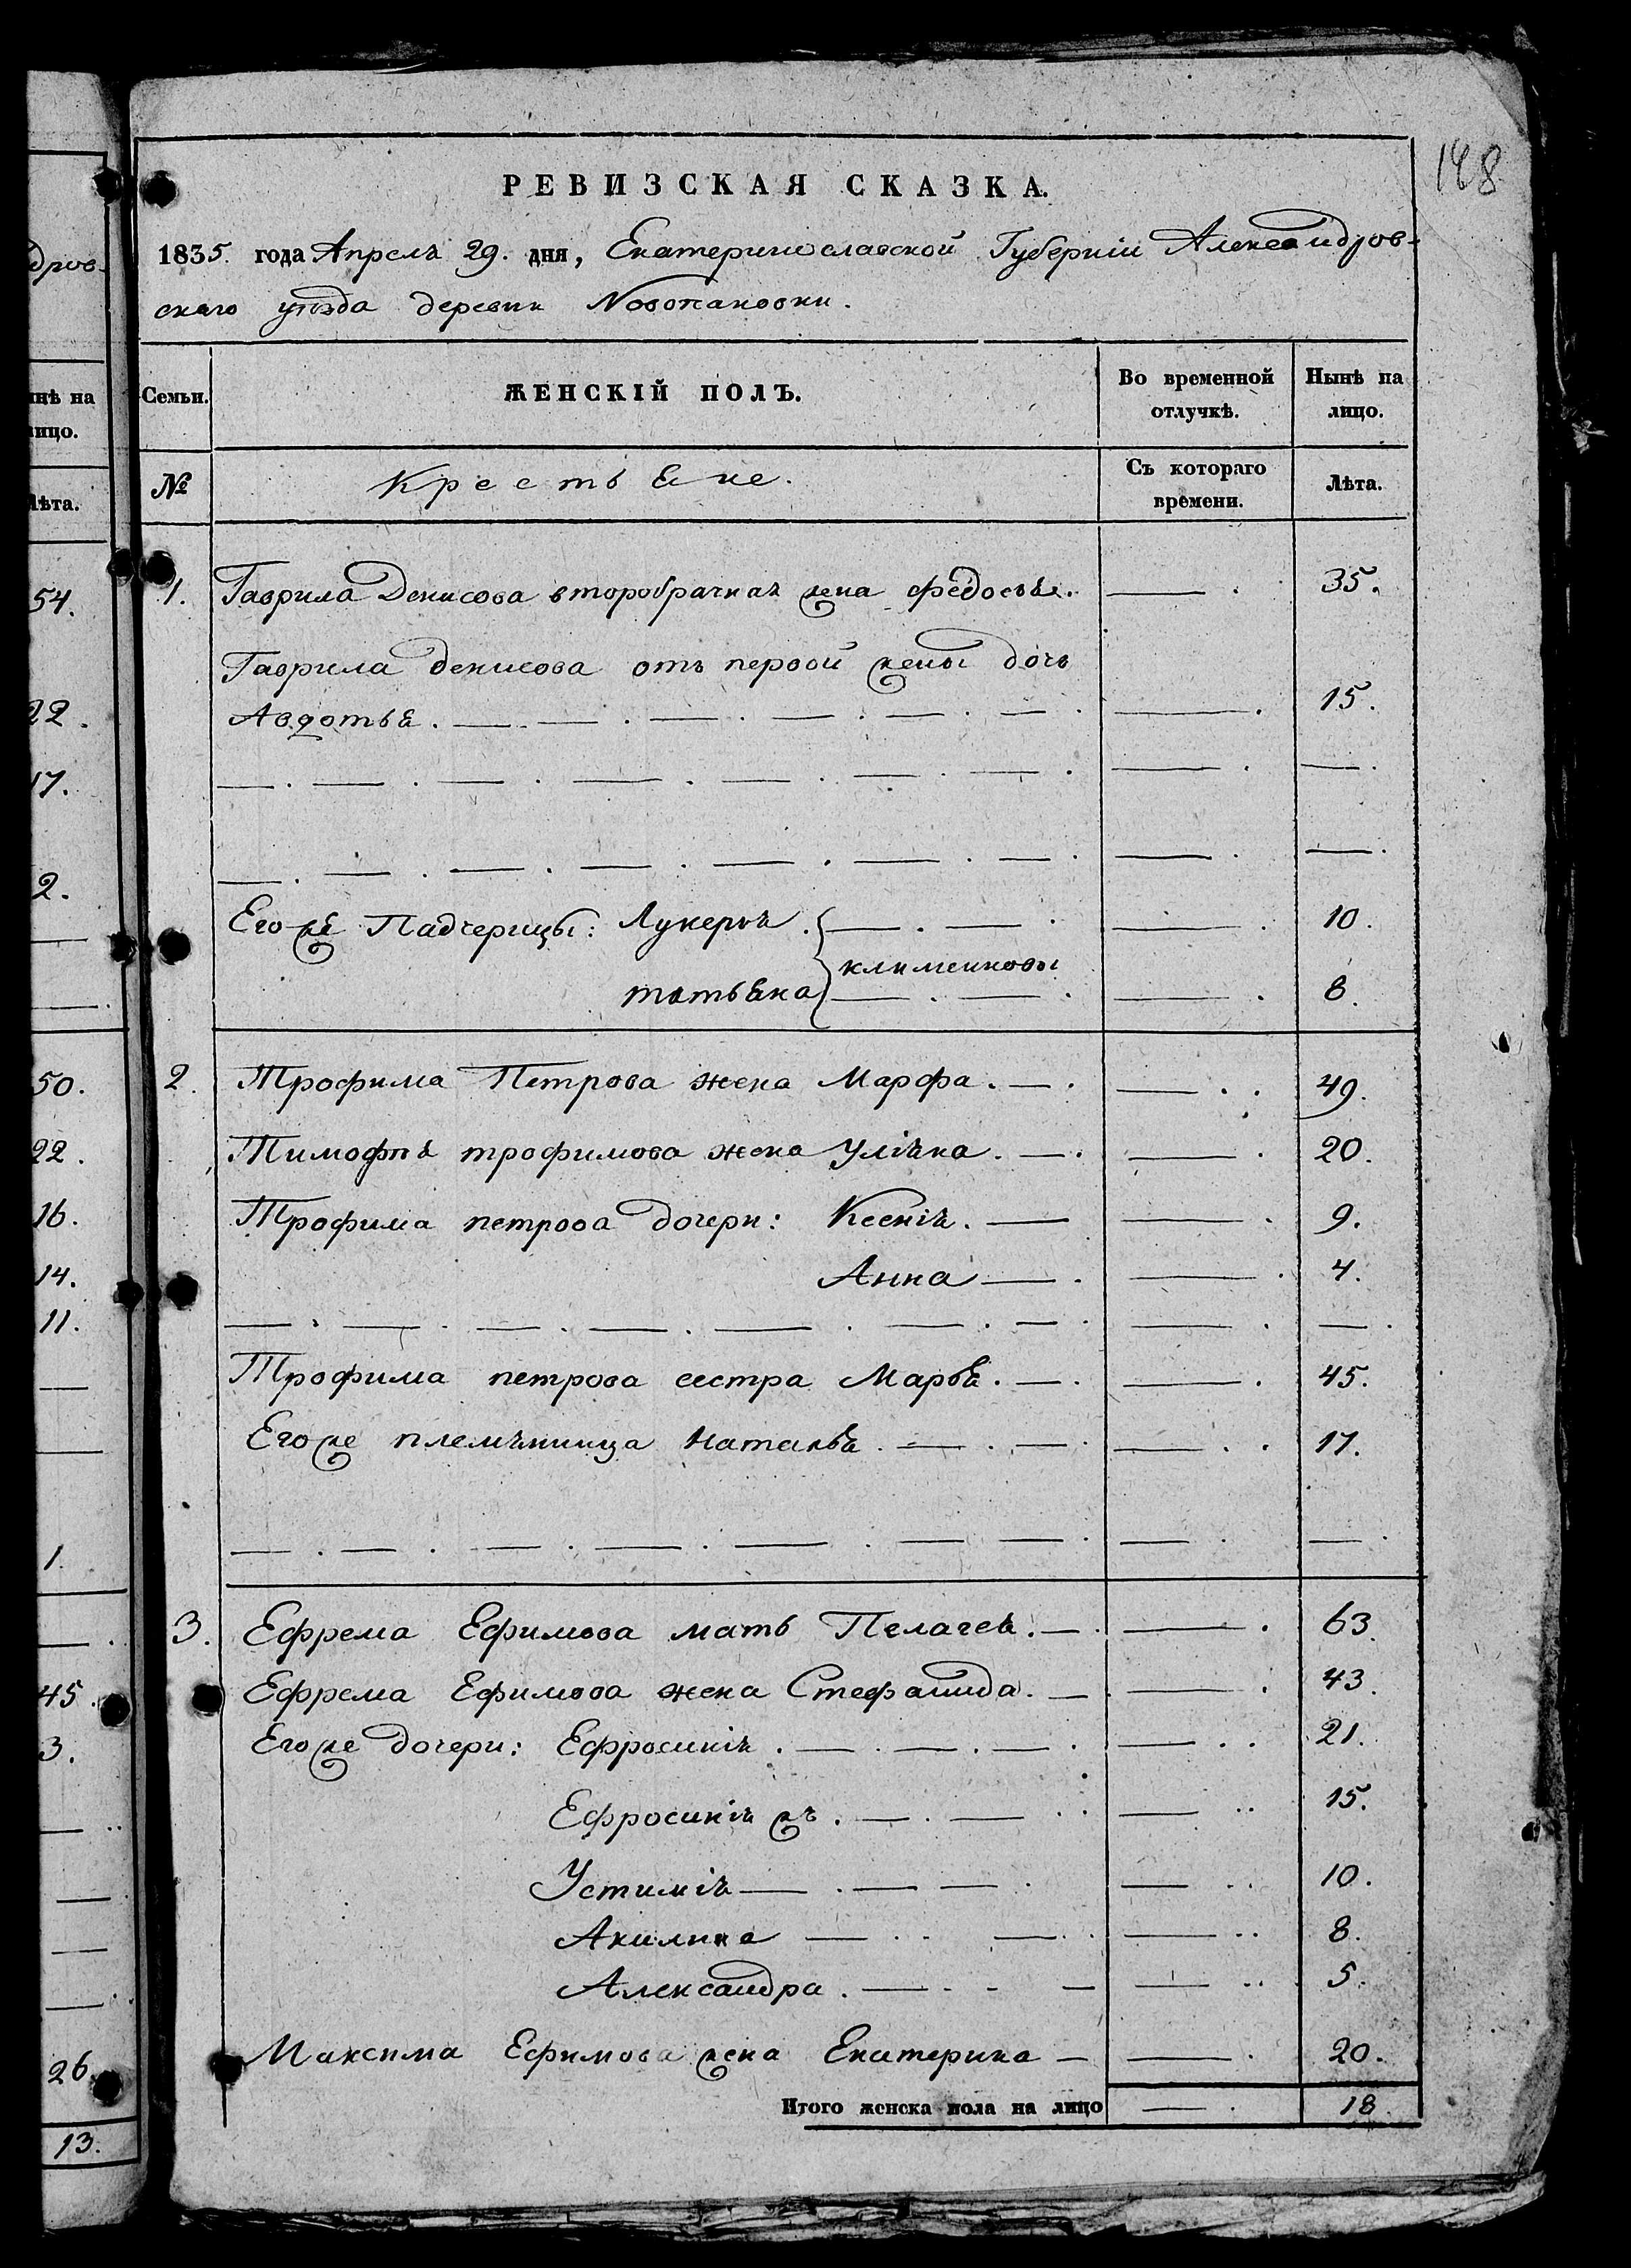 148
РЕВИЗСКАЯ СКАЗКА.
1835. года Апрелѣ 29. дня, Екатеринославской Губерніи Александров-
скаго уѣзда деревни Новопановки.
дров-
Семьи. ЖЕНСКІЙ ПОЛЪ. Во временной отлучкѣ. Нынѣ на лицо.
инѣ на
лицо.
№ Крестьяне. Съ котораго времени. Лѣта.
лѣта.
1. Гаврила Денисова второбрачная жена Федосья. — . 35.
54.
Гаврила Денисова отъ первой жены дочь
Авдотья. — . — . — . — . — . — . — . 15.
22.
— . — . — . — . — . — . — . — . — .
17.
— . — . — . — . — . — . — . — . — .
2.
Его же Падчерицы: Лукерья. { — . — . — . 10.
клименковы
татьяна } — . — . — . 8.
2. Трофима Петрова жена Марфа. — . — . . 49.
50.
Тимофея трофимова жена Уліяна. — . — . 20.
22.
Трофима петрова дочери: Ксенія. — — . 9.
16.
Анна — . — . 4.
14.
— . — . — . — . — . — . — . — . — .
11.
Трофима петрова сестра Марья. — . — . 45.
Его же племяница Наталья. — . — . — . . 17.
— . — . — . — . — . — — . — . — .
1.
3. Ефрема Ефимова мать Пелагея. — . — . 63.
Ефрема Ефимова жена Стефанида. — — . 43.
45.
Его же дочери: Ефросинія. — . — . — . — . . 21.
3.
Ефросинія жъ. — . — . . — . . 15.
Устинія — . — — . — . . 10.
Акилина — . . — . . — . . 8.
Александра. — . - — — . . 5.
Максима Ефимова жена Екатерина — — . 20.
26.
Итого женска пола на лицо — . 18.
13.